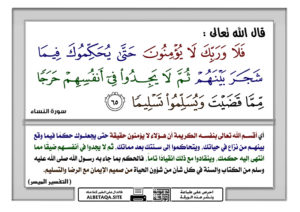 قال الله تعالى :
فَلَا وَرَبِّكَ لَا يُؤْمِنُونَ حَتَّىٰ يُحَكِّمُوكَ فِيمَا
شَجَرَ بَيْنَهُمْ ثُمَّ لَا يَجِدُوا فِي أَنْفُسِهِمْ حَرَجًا
مِّمَّا قَضَيْتَ وَيُسَلِّمُوا تَسْلِيمًا ٦٥
سورة النساء
أي أقسم الله تعالى بنفسه الكريمة أن هؤلاء لا يؤمنون حقيقة حتى يجعلوك حكما فيما وقع
بينهم من نزاع في حياتك، ويتحاكموا إلى سنتك بعد مماتك، ثم لا يجدوا في أنفسهم ضيقا مما
انتهى إليه حكمك، وينقادوا مع ذلك انقيادا تاما. فالحكم بما جاء به رسول الله صلى الله عليه
وسلم من الكتاب والسنة في كل شأن من شؤون الحياة من صميم الإيمان مع الرضا والتسليم.
( التفسير الميسر )
ALBETAQA.SITE